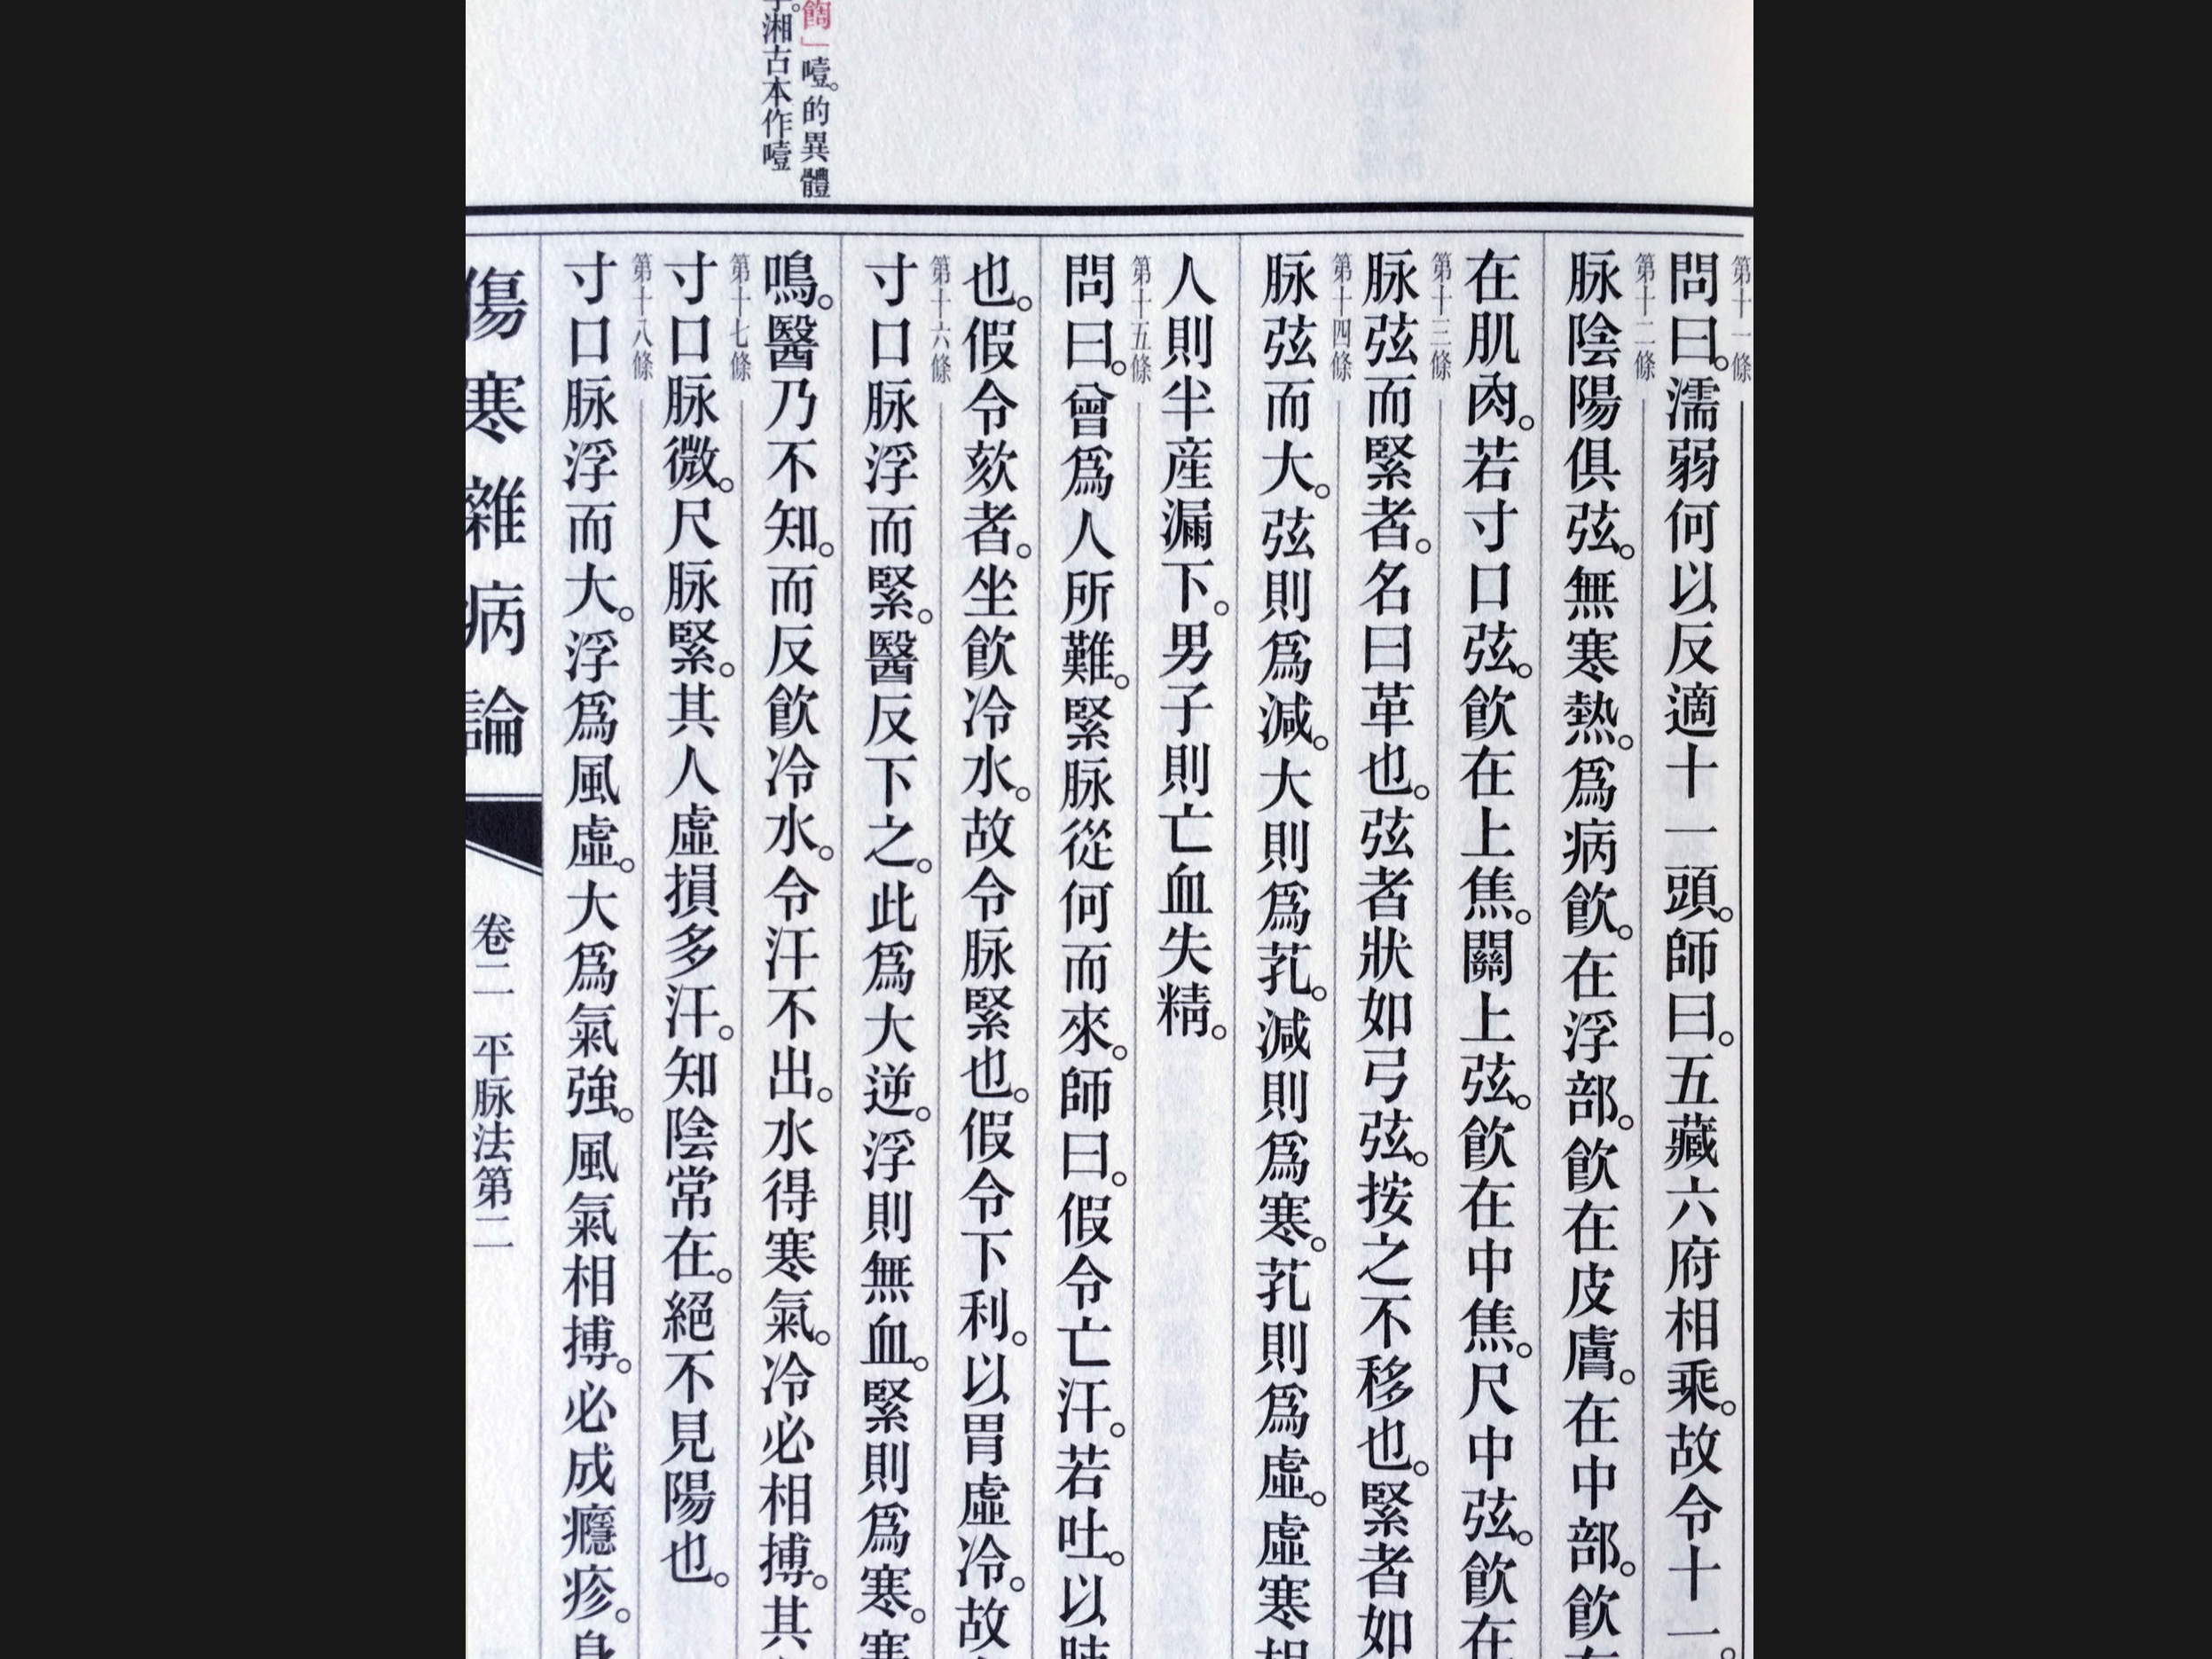 餶」噎。的異體
字。湘古本作噎
第十一條
問曰。濡弱何以反適十一頭。師曰。五藏六府相乘。故令十一。
第十二條
脉陰陽俱弦。無寒熱。爲病飲。在浮部。飲在皮膚。在中部。飲在
在肌肉。若寸口弦。飲在上焦。關上弦。飲在中焦。尺中弦。飲在
第十三條
脉弦而緊者。名曰革也。弦者狀如弓弦。按之不移也。緊者如
第十四條
脉弦而大。弦則爲減。大則爲芤。減則爲寒。芤則爲虛。虛寒相
人則半産漏下。男子則亡血失精。
第十五條
問曰。曾爲人所難。緊脉從何而來。師曰。假令亡汗。若吐。以肺
也。假令欬者。坐飲冷水。故令脉緊也。假令下利。以胃虛冷。故
第十六條
寸口脉浮而緊。醫反下之。此爲大逆。浮則無血。緊則爲寒。寒
鳴。醫乃不知。而反飲冷水。令汗不出。水得寒氣。冷必相搏。其
第十七條
寸口脉微。尺脉緊。其人虛損多汗。知陰常在。絕不見陽也。
第十八條
寸口脉浮而大。浮爲風虛。大爲氣強。風氣相搏。必成癮疹。身
傷寒雜病論
卷二 平脉法第二